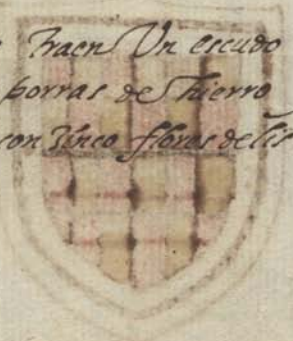 traen Vn escudo
porras de hierro
con zinco flores de lis